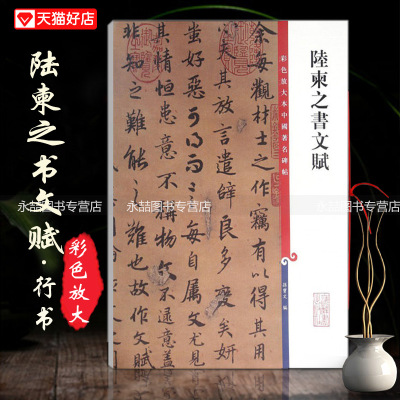 天猫好店
陆柬之书文赋·行书
彩色放大
彩色放大本中國著名碑帖
陸柬之書文賦
孫寶文 編
余每觀材士之作竊有以得其用
心夫其放言遣辞良多變矣妍
蚩好惡可得而言每自属文尤見
其情恒患意不稱物文不逮意盖
非知之難能之難也故作文賦
永喆图书专营店
永喆图书专营店
永喆图书专营店